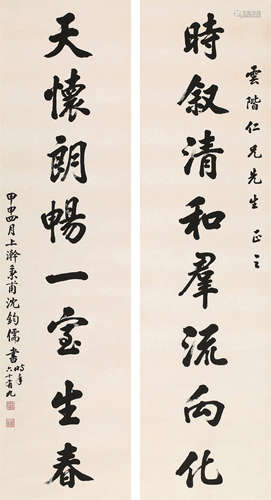 雲階仁兄先生 正之
時叙清和羣流向化
天懷朗暢一室生春
甲申四月上澣秉甫沈鈞儒書時年六十有九